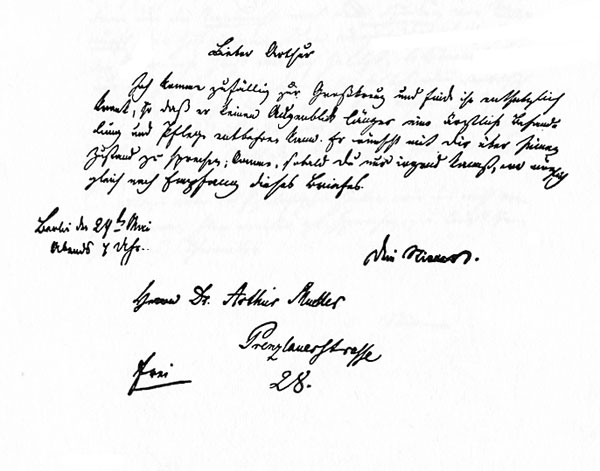 Lieber Arthur
Ich komme zufällig zur und finde ihn entsetzlich
krank, so daß er keinen Augenblick länger eine Behand-
lung und Pflege entbehren kann. Er wünscht mit Dir über seinen
Zustand zu sprechen, komme, sobald Du nur irgend kannst, wo möglich
gleich nach Empfang dieses Briefes.
Berlin den Mai
Abends 7 Uhr.
Dein
Herrn Dr. Arthur Müller
Prenzlauerstrasse
28.
frei